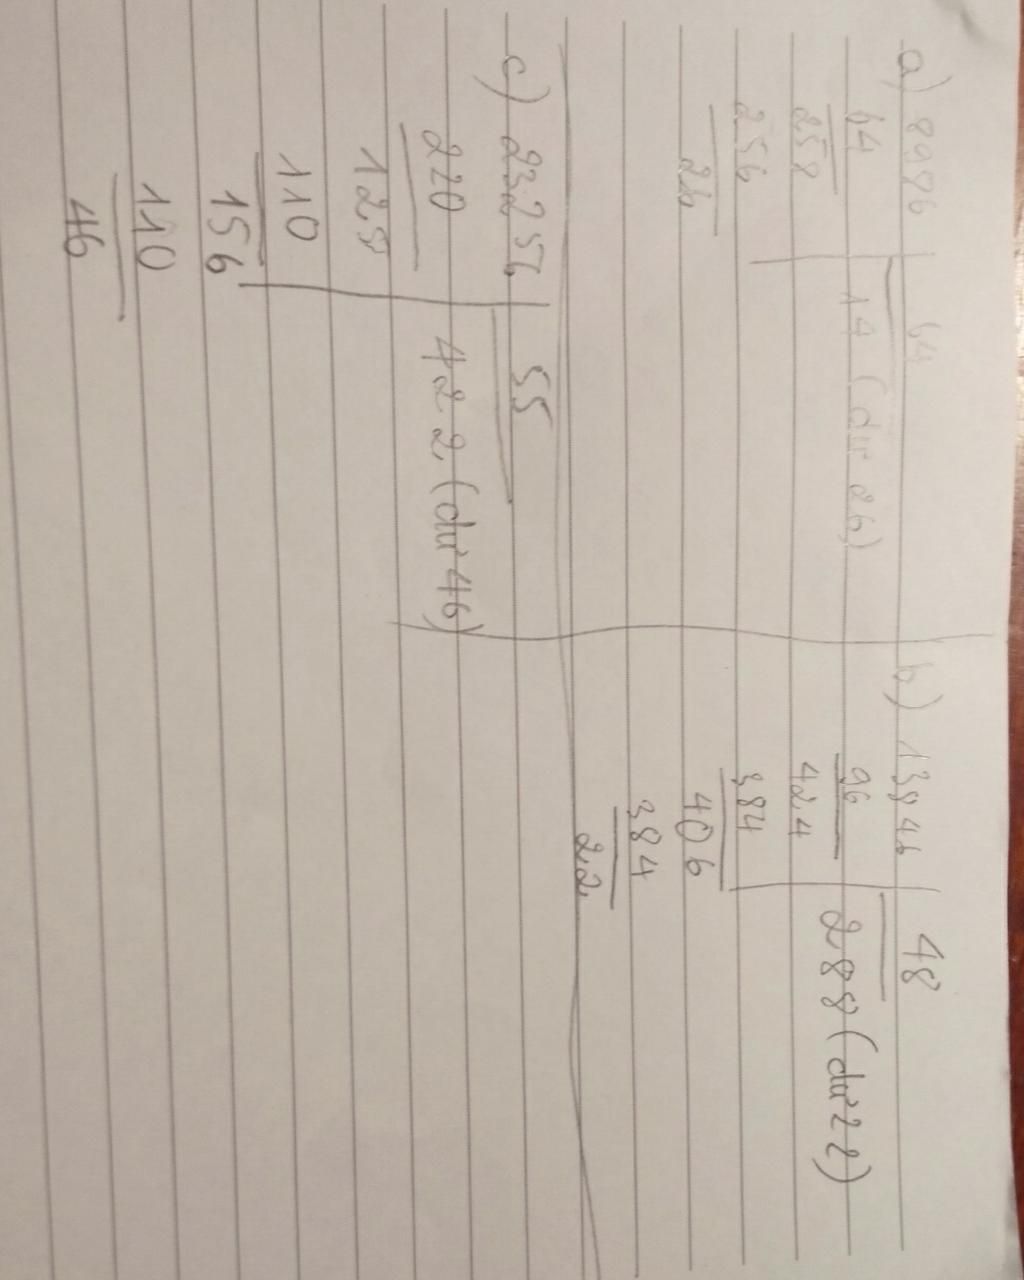 a) 8986 64
64 14 (dư 26)
258
256
26
b) 13846 48
96 288 (dư 22)
424
384
406
384
22
c) 23256 55
220 422 (dư 46)
125
110
156
110
46